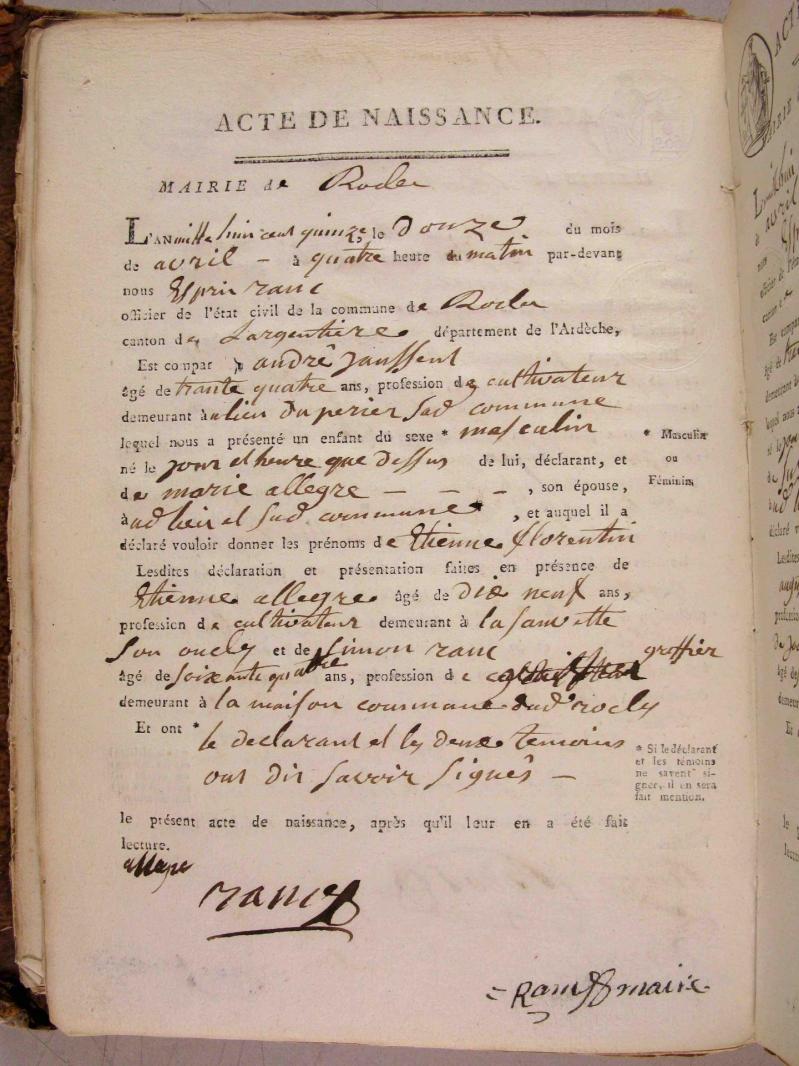 ACTE DE NAISSANCE.
MAIRIE de Rocles
L'AN mille huit cent quinze, le douze du mois
de avril - à quatre heure du matin par-devant
nous Esprit ranc
officier de l'état civil de la commune de Rocles
canton de Largentiere département de l'Ardèche,
Est compar andré Jaussent
âgé de trante quatre ans, profession de cultivateur
demeurant à lieu du perier sud commune
lequel nous a présenté un enfant du sexe * masculin
* Masculin
ou
Féminin
né le jour et heure que dessus de lui, déclarant, et
de marie allegre - - - , son épouse,
à ud lieu et sud commune , et auquel il a
déclaré vouloir donner les prénoms de Etienne florentin
Lesdites déclaration et présentation faites en présence de
Etienne allegre âgé de dix neuf ans,
profession de cultivateur demeurant à la sauvette
son oncle et de simon ranc
âgé de soixante quatre ans, profession de greffier
demeurant à la maison commune dud rocles
Et ont * le declarant et les deux temoins
ont dit savoir signés -
* Si le déclarant
et les témoins
ne savent si-
gner, il en sera
fait mention.
le présent acte de naissance, après qu'il leur en a été fait
lecture.
allegre
ranc
= Ranc maire